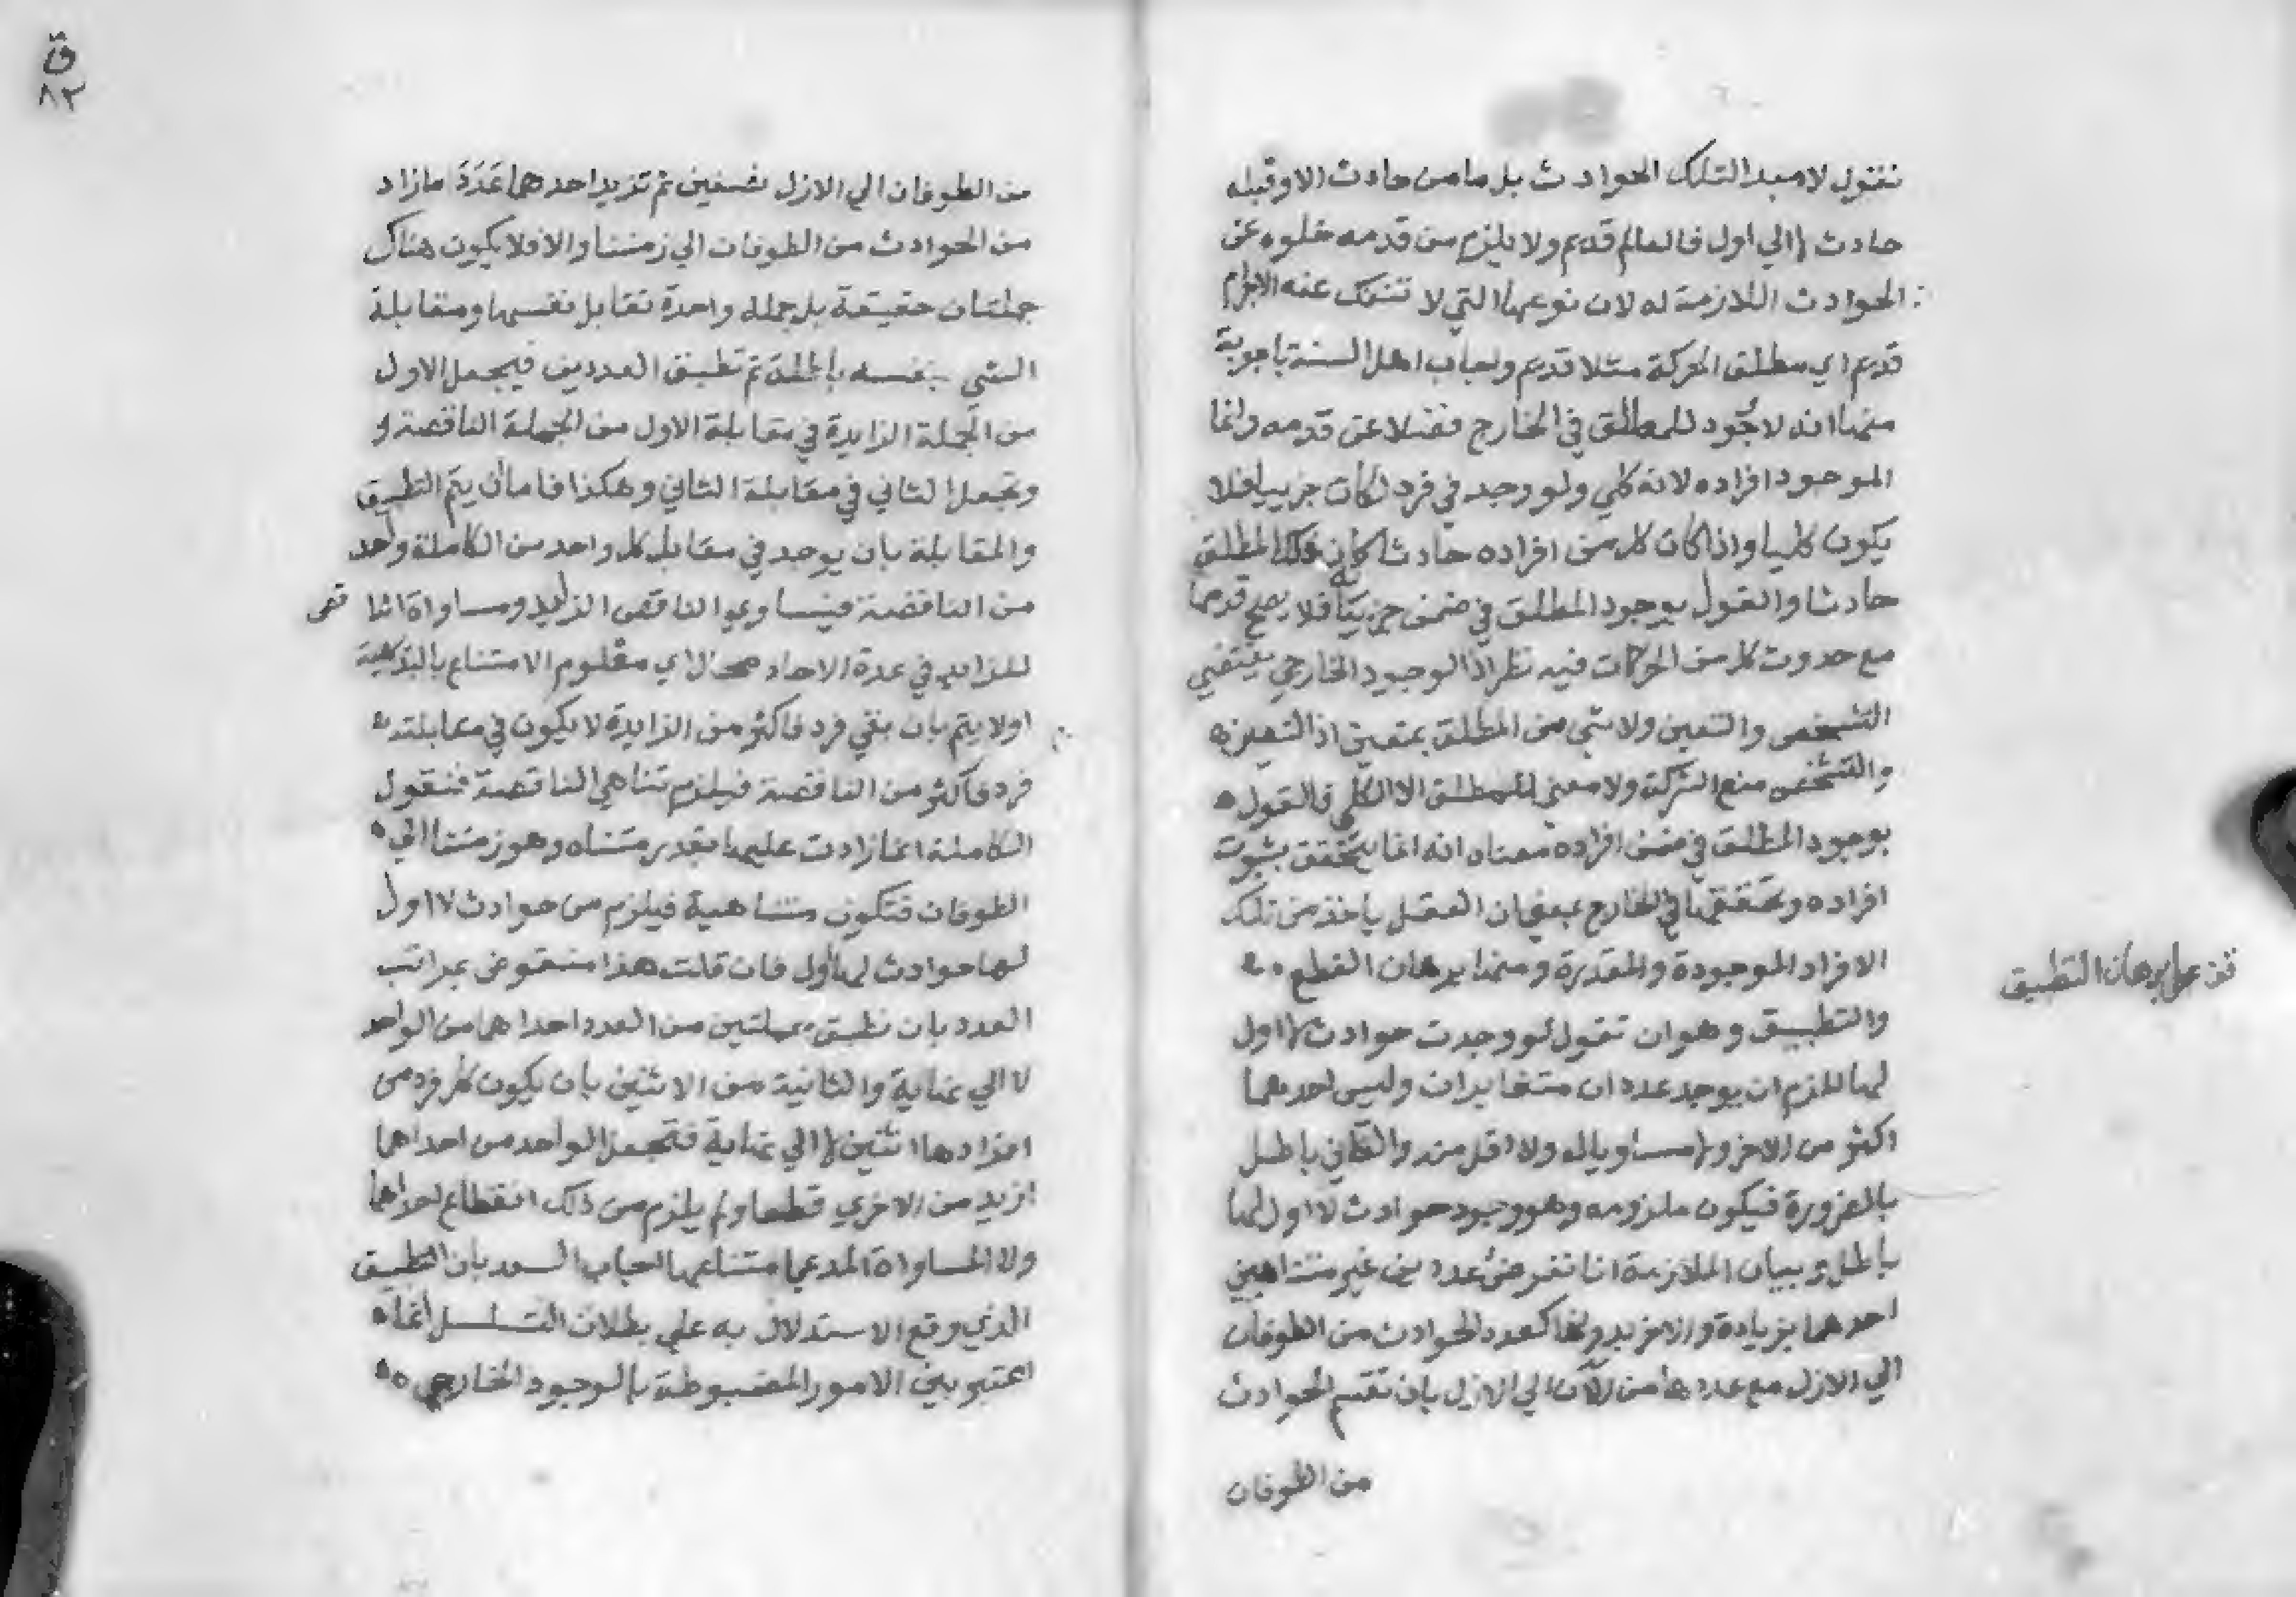 نقول لا مبدا لتلك الحوادث بل ما من حادث الا وقبله
حادث لا الي اول فالعالم قديم ولا يلزم من قدمه خلوه عن
الحوادث اللازمة له لان نوعها التي لا تنفك عنه الاجرام
قديم اي مطلق الحركة مثلا قديم وجاب اهل السنة باجوبة
منها انه لا وجود للمطلق في الخارج فضلا عن قدمه وانما
الموجود افراده لانه كلي ولو وجد في فرد لكان جزييا فلا
يكون كليا واذا كان كل من افراده حادثا كان المطلق
حادثا والقول بوجود المطلق في ضمن جزيياته فلا يصح قدمها
مع حدوث كل من الحركات فيه نظر اذ الوجود الخارجي يقتضي
التشخص والتعين ولا شي من المطلق بمتعين اذ التعين
والتشخص منع الشركة ولا معني للمطلق الا الكلي فالقول
بوجود المطلق في ضمن افراده معناه انه انما يتحقق بثبوت
افراده وتحققها في الخارج بمعني ان العقل ياخذ من تلك
الافراد الموجودة والمقدرة ومنها برهان القطع
والتطبيق وهو ان تقول لو وجدت حوادث لا اول
لها للزم ان يوجد عددان متغايران وليس احدهما
اكثر من الاخر ولا مساويا له ولا اقل منه والتالي باطل
بالضرورة فيكون ملزومه وهو وجود حوادث لا اول لها
باطل وبيان الملازمة انا نفرض عددين غير متناهيين
احدهما بزيادة والاخر بدونها كعدد الحوادث من الطوفان
الي الازل مع عددها من الآن الي الازل بان تقسم الحوادث
من الطوفان
قف علي برهان التطبيق
ق
٨٢
من الطوفان الي الازل نصفين ثم تزيد احدهما عَدَدَ ما زاد
من الحوادث من الطوفان الي زمننا والا فلا يكون هناك
جملتان حقيقة بل جملة واحدة تقابل نفسها ومقابلة
الشي بنفسه باطلة ثم تطبيق العددين فيجعل الاول
من الجملة الزايدة في مقابلة الاول من الجملة الناقصة
وتجعل الثاني في مقابلة الثاني وهكذا فاما ان يتم التطبيق
والمقابلة بان يوجد في مقابل كل واحد من الكاملة واحد
من الناقصة فيساوي الناقص الزايد ومساواة الناقص
للزايد في عدة الاحاد محال اي معلوم الامتناع بالبديهية
اولا يتم بان بقي فرد فاكثر من الزايدة لا يكون في مقابلته
فرد فاكثر من الناقصة فيلزم تناهي الناقصة فنقول
الكاملة انما زادت عليها بقدر متناه وهو زمننا الي
الطوفان فتكون متناهية فيلزم من حوادث لا اول
لها حوادث لها اول فان قلت هذا منقوض بمراتب
العدد بان نطبق جملتين من العدد احداهما من الواحد
لا الي نهاية والثانية من الاثنين بان يكون كل فرد من
افرادها اثنين لا الي نهاية فتجعل الواحد من احداهما
ازيد من الاخري قطعا ولم يلزم من ذلك انقطاع احداهما
ولا المساواة المدعي امتناعها اجاب السعد بان التطبيق
الذي وقع الاستدلال به علي بطلان التسلسل انما
اعتبر بين الامور المضبوطة بالوجود الخارجي